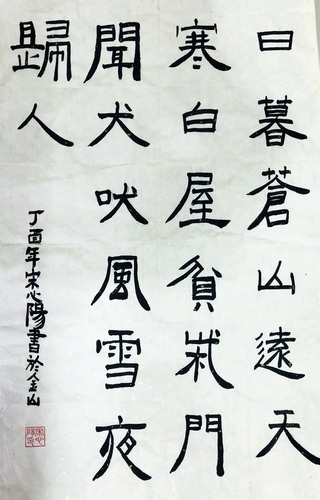 日暮蒼山遠天
寒白屋貧柴門
聞犬吠風雪夜
歸人
丁酉年宋心陽書於金山